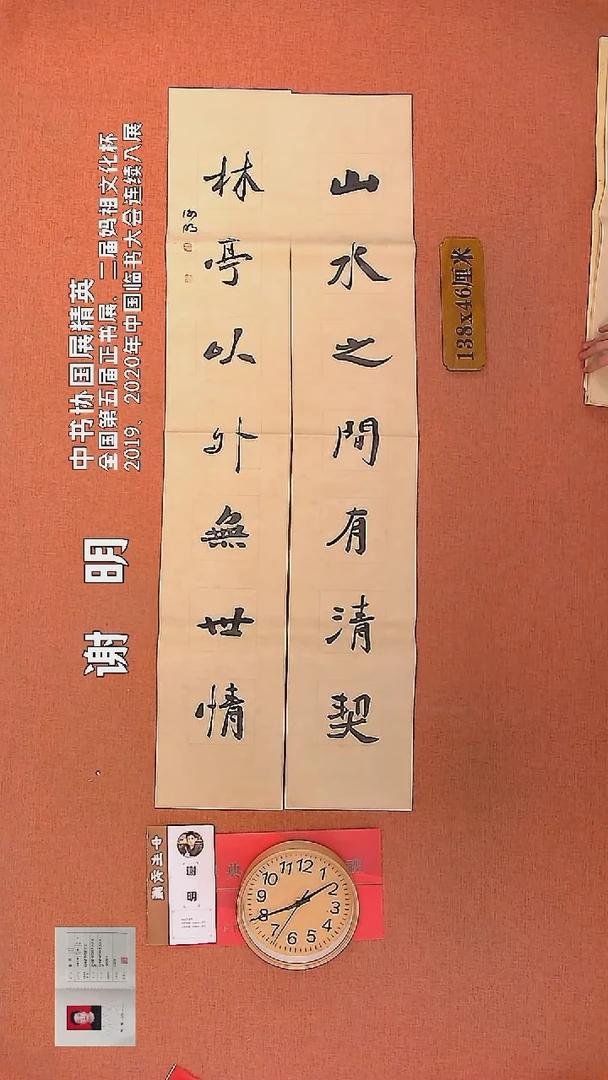 山水之間有清契
林亭以外無世情
谢明
138x46厘米
中书协国展精英
全国第五届正书展、二届妈祖文化杯
2019、2020年中国临书大会连续入展
谢 明
谢明
12
1
2
3
4
5
6
7
8
9
10
11